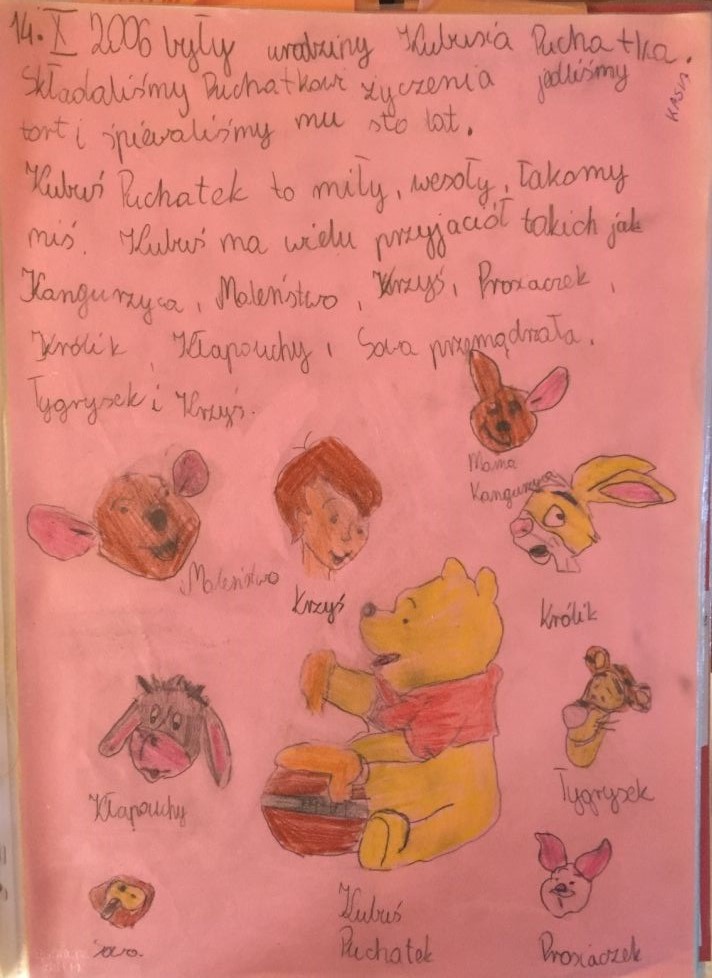 14. X 2006 były urodziny Kubusia Puchatka.
Składaliśmy Puchatkowi życzenia jedliśmy
tort i śpiewaliśmy mu sto lat.
KASIA
Kubuś Puchatek to miły, wesoły, łakomy
miś. Kubuś ma wielu przyjaciół takich jak
Kangurzyca, Maleństwo, Krzyś, Prosiaczek,
Królik, Kłapouchy, Sowa przemądrzała.
Tygrysek i Krzyś.
Mama
Kangurzyca
Maleństwo
Krzyś
Królik
Kłapouchy
Tygrysek
Sowa.
Kubuś
Puchatek
Prosiaczek